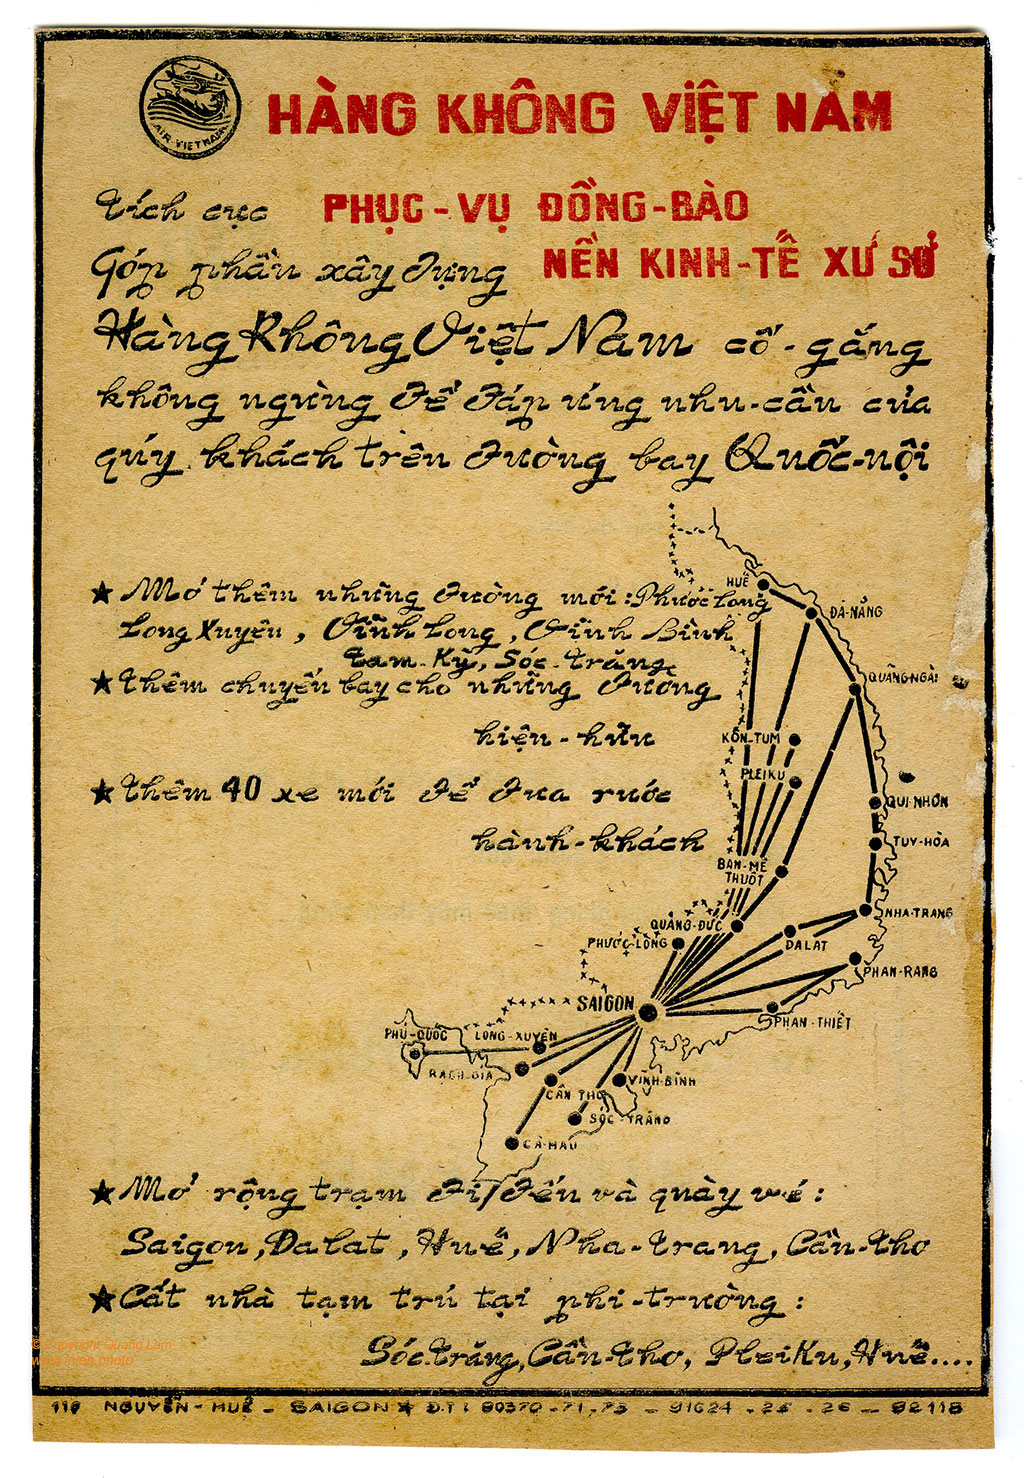 AIR-VIETNAM
HÀNG KHÔNG VIỆT NAM
Tích cực PHỤC-VỤ ĐỒNG-BÀO
Góp phần xây dựng NỀN KINH-TẾ XỨ SỞ
Hàng Không Việt Nam cố-gắng
không ngừng để đáp ứng nhu-cầu của
quý khách trên đường bay Quốc-nội
★ Mở thêm những đường mới: Phước Long
Long Xuyên, Vĩnh Long, Vĩnh Bình
Tam-Kỳ, Sóc-trăng
★ Thêm chuyến bay cho những đường
hiện-hữu
★ Thêm 40 xe mới để đưa rước
hành-khách
HUẾ
ĐÀ-NẴNG
QUÃNG-NGÃI
KÔN-TUM
PLEIKU
QUI-NHƠN
TUY-HÒA
BAN-MÊ
THUỘT
NHA-TRANG
QUẢNG-ĐỨC
PHƯỚC-LONG
DALAT
PHAN-RANG
SAIGON
PHAN-THIẾT
PHÚ-QUỐC
LONG-XUYÊN
RẠCH-GIÁ
VĨNH-BÌNH
CẦN THƠ
SÓC-TRĂNG
CÀ-MAU
★ Mở rộng trạm đi/đến và quày vé:
Saigon, Dalat, Huế, Nha-trang, Cần-thơ
★ Cất nhà tạm trú tại phi-trường:
Sóc-trăng, Cần-thơ, Pleiku, Huế....
© Copyright Quang Lam
116 NGUYỄN-HUỆ - SAIGON ★ Đ.T: 90370-71-73 - 91624-25-26 - 92118